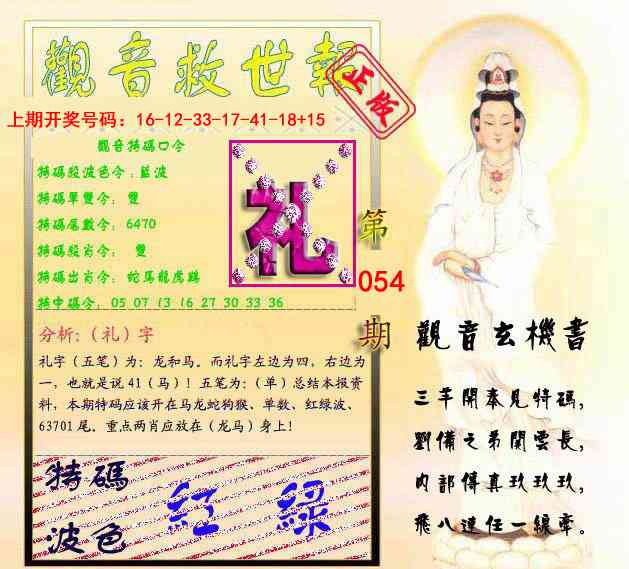 觀音救世報
正版
上期开奖号码：16-12-33-17-41-18+15
觀音特碼口令
特碼殺波色令：藍波
特碼單雙令： 雙
特碼尾數令： 6470
特碼殺肖令： 雙
特碼出肖令： 蛇馬龍虎鷄
特中碼令： 05 07 13 16 27 30 33 36
礼
第
054
期
分析:（礼）字
礼字（五笔）为：龙和马。而礼字左边为四，右边为
一，也就是说 41（马）！五笔为：（单）总结本报资
料，本期特码应该开在马龙蛇狗猴、单数、红绿波、
63701 尾。重点两肖应放在（龙马）身上！
特碼
波色
紅 綠
觀音玄機書
三羊開泰見特碼，
劉備之弟関雲長，
内部傳真玖玖玖，
飛八達任一線牽。